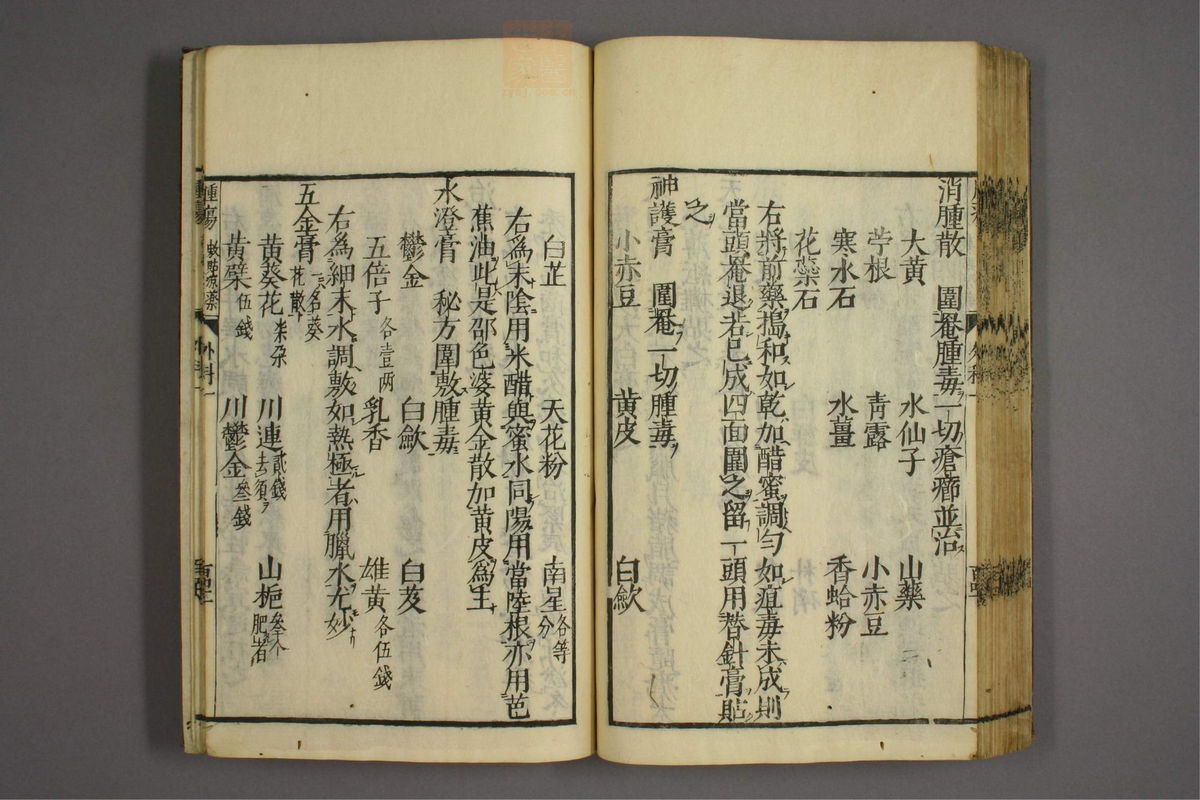 消腫散　圍罨腫毒一切瘡癤並治
大黃　水仙子　山藥
苧根　靑露　小赤豆
寒水石　水薑　香蛤粉
花蘂石
右將前藥搗和如乾加醋蜜調勻如疽毒未成則
當頭罨退若已成四面圍之留一頭用替針膏貼
之
神護膏　圍罨一切腫毒
小赤豆　黃皮　白歛
白芷　天花粉　南星各等分
右爲末陰用米醋與蜜水同陽用當陸根亦用芭
蕉油此是邵色婆黃金散加黃皮爲主
水澄膏　秘方圍敷腫毒
鬱金　白歛　白芨
五倍子各壹两　乳香　雄黃各伍錢
右爲細末水調敷如熱極者用臘水尤妙
五金膏一名葵花散
黃葵花　川連貳錢去須　山梔叄个肥者
黃檗伍錢　川鬱金叄錢
腫瘍　敷貼凉藥　外科一